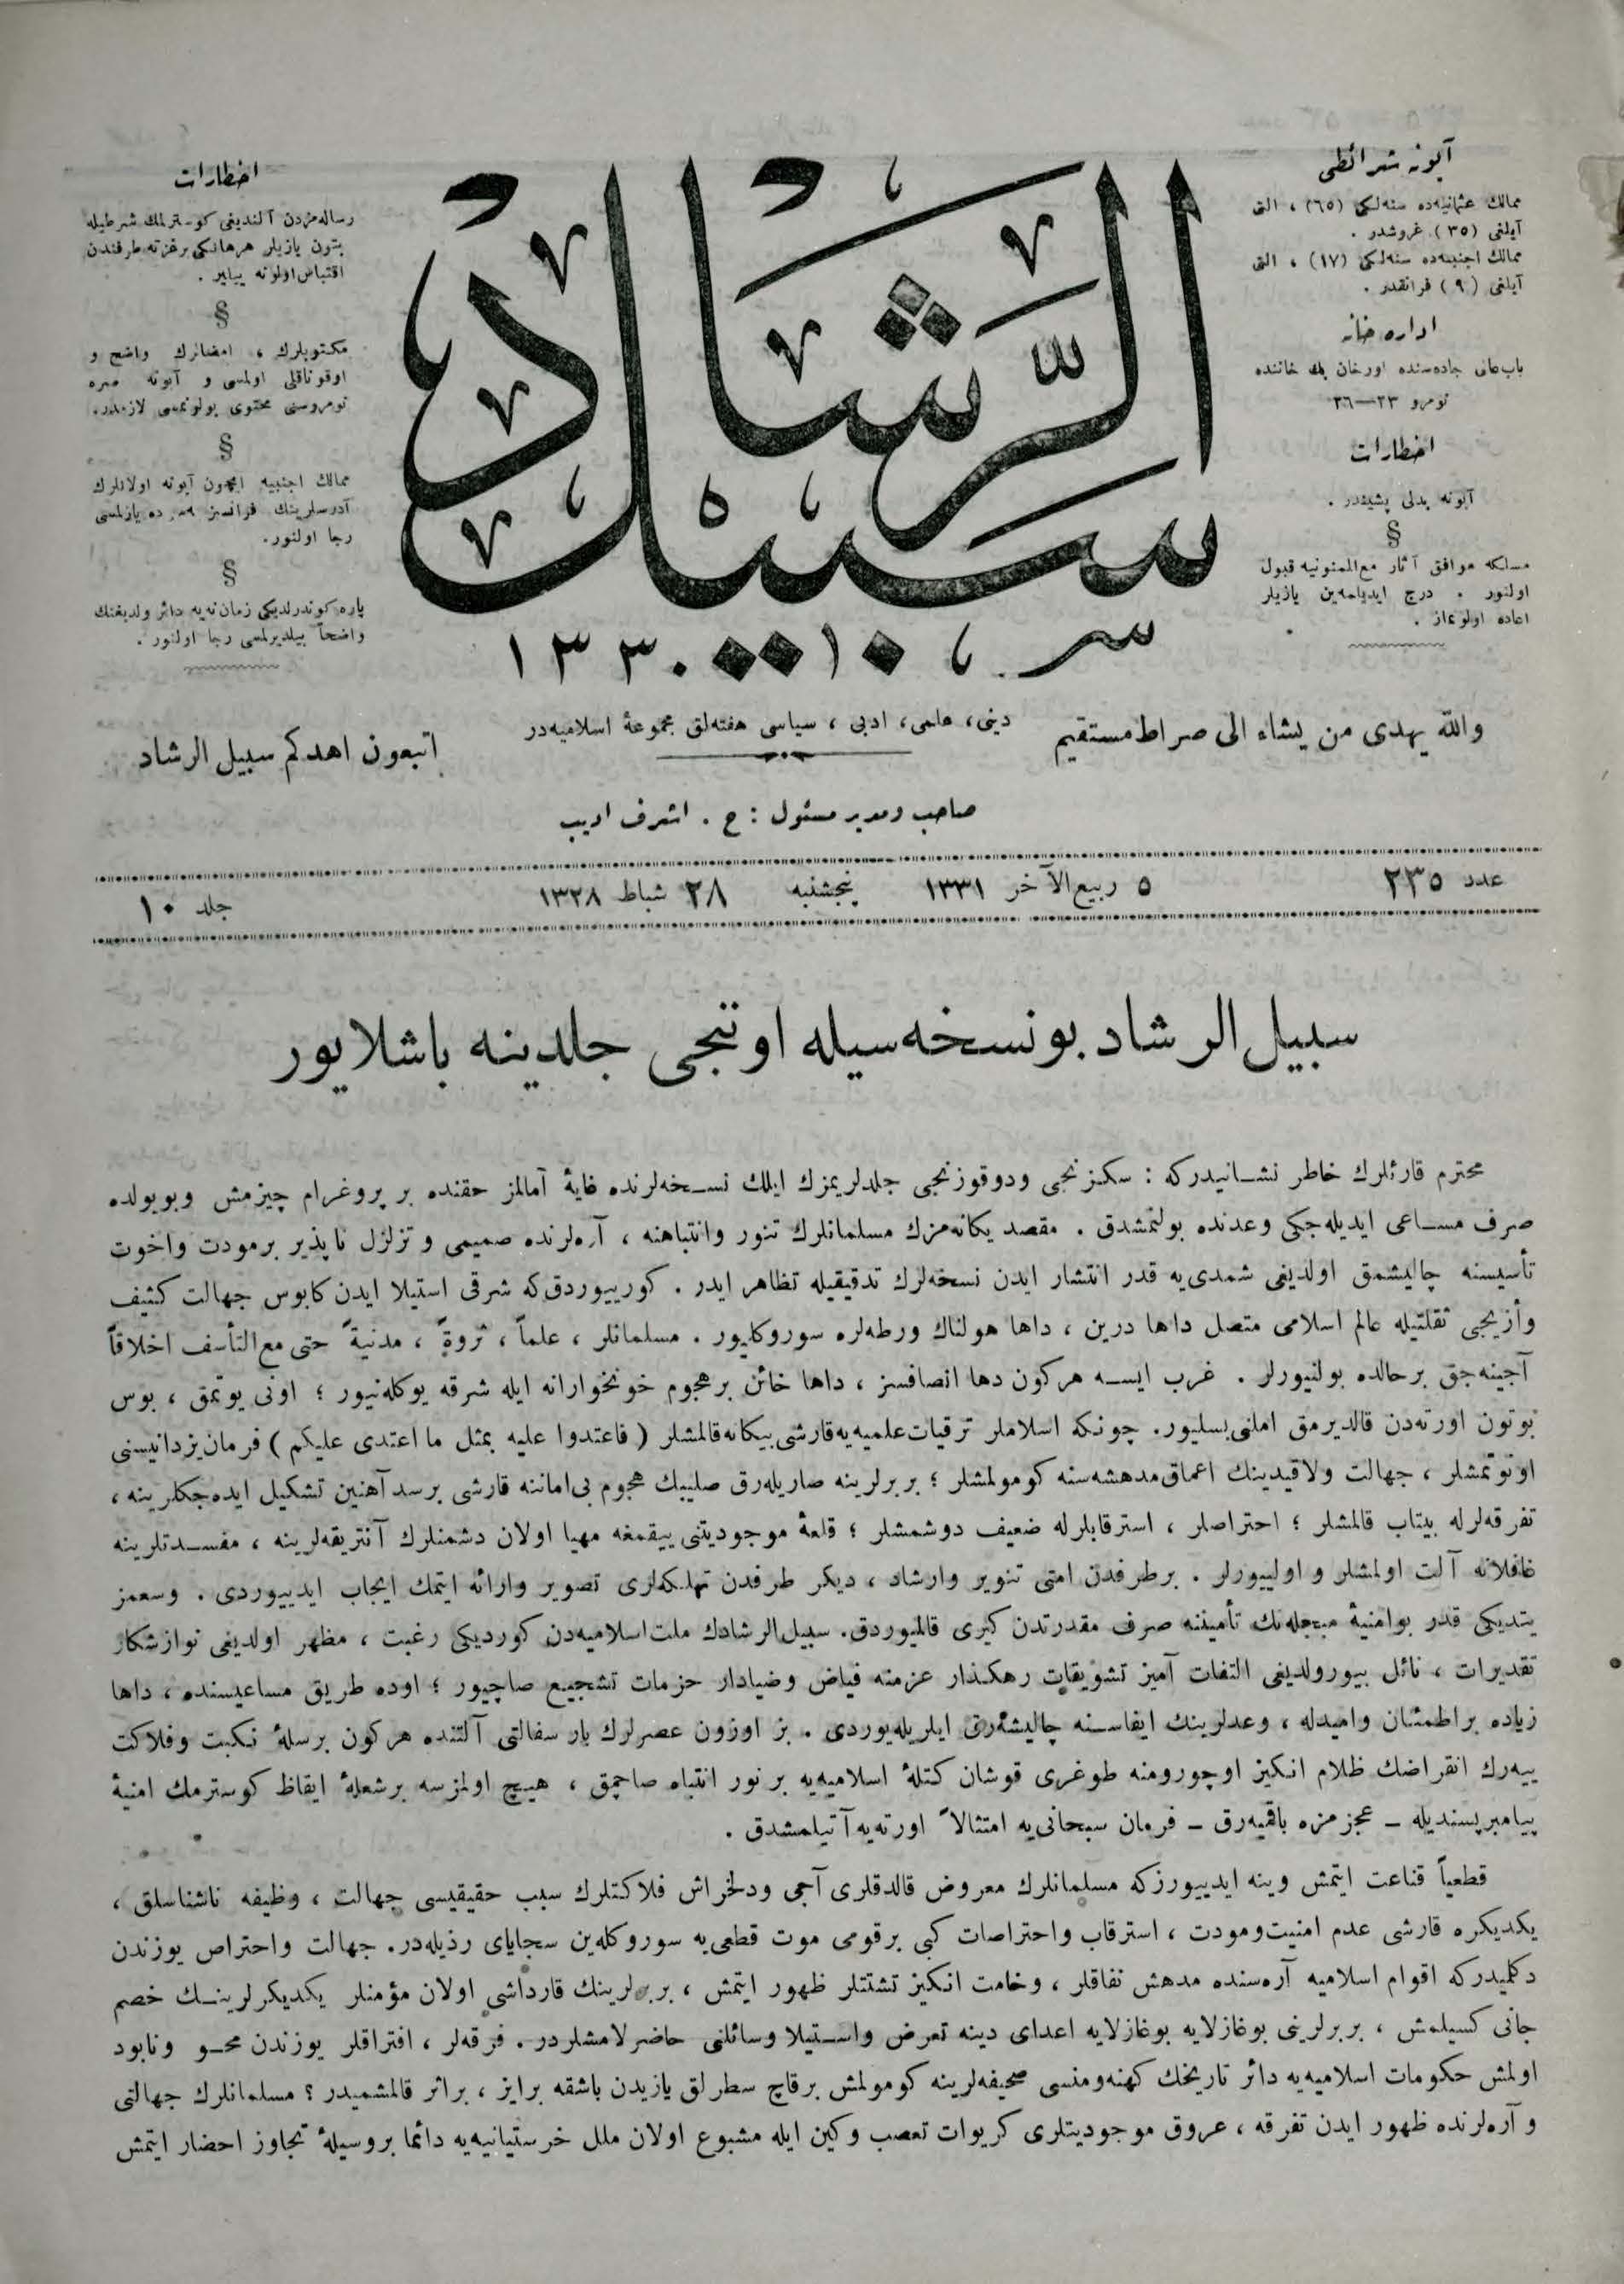 آبونه شرائطی
ممالك عثمانیه‌ده سنه‌لكی (٦٥) ، التی
آیلغی (٣٥) غروشدر .
ممالك اجنبیه‌ده سنه‌لكی (١٧) ، التی
آیلغی (٩) فرانقدر .
اداره خانه
باب‌عالی جاده‌سنده اورخان بك خاننده
نومرو ٢٣—٢٦
اخطارات
آبونه بدلی پشیندر .
§
مسلكه موافق آثار مع‌الممنونیه قبول
اولنور . درج ایدیلمه‌ین یازیلر
اعاده اولونماز .
سبیل الرشاد
١٣٣٠
اخطارات
رساله‌مزدن آلندیغی كوسترلمك شرطیله
بتون یازیلر هرهانكی برغزته طرفندن
اقتباس اولونه بیلیر .
§
مكتوبلرك ، امضالرك واضح و
اوقوناقلی اولمسی و آبونه صره
نومروسنی محتوی بولونمسی لازمدر.
§
ممالك اجنبیه ایچون آبونه اولانلرك
آدرسلرینك فرانسزجه ده یازلمسی
رجا اولنور.
§
پاره كوندرلدیكی زمان نه‌یه دائر ولدیغنك
واضحاً بیلدیرلمسی رجا اولنور .
والله یهدی من یشاء الی صراط مستقیم
دینی، علمی، ادبی ، سیاسی هفته‌لق مجموعهٔ اسلامیه‌در
اتبعون اهدكم سبیل الرشاد
صاحب ومدیر مسئول : ح . اشرف ادیب
عدد ٢٣٥ ٥ ربیع‌الآخر ١٣٣١ پنجشنبه ٢٨ شباط ١٣٢٨ جلد ١٠
سبیل‌الرشاد بونسخه‌سیله اوننجی جلدینه باشلایور
محترم قارئلرك خاطر نشانیدركه : سكزنجی ودوقوزنجی جلدلریمزك ایلك نسخه‌لرنده غایهٔ آمالمز حقنده بر پروغرام چیزمش وبویولده
صرف مساعی ایدیله‌جكی وعدنده بولنمشدق . مقصد یكانه‌مزك مسلمانلرك تنور وانتباهنه ، آره‌لرنده صمیمی و تزلزل ناپذیر برمودت واخوت
تأسیسنه چالیشمق اولدیغی شمدی‌یه قدر انتشار ایدن نسخه‌لرك تدقیقیله تظاهر ایدر . كورییوردق‌كه شرقی استیلا ایدن كابوس جهالت كثیف
وأزیجی ثقلتیله عالم اسلامی متصل داها درین ، داها هولناك ورطه‌لره سوروكلیور . مسلمانلر ، علماً ، ثروةً ، مدنیةً حتی مع‌التأسف اخلاقاً
آجینه‌جق برحالده بولنیورلر . غرب ایسه هركون دها انصافسز ، داها خائن برهجوم خونخوارانه ایله شرقه یوكله‌نیور ؛ اونی یوتمق ، بوس
بوتون اورته‌دن قالدیرمق املنی بسلیور. چونكه اسلاملر ترقیات‌علمیه‌یه‌قارشی بیكانه‌قالمشلر (فاعتدوا علیه بمثل ما اعتدی علیكم) فرمان‌یزدانیسنی
اونوتمشلر ، جهالت ولاقیدینك اعماق‌مدهشه‌سنه كومولمشلر ؛ بربرلرینه صاریله‌رق صلیبك هجوم بی‌اماننه قارشی برسد آهنین تشكیل ایده‌جكلرینه ،
تفرقه‌لرله بیتاب قالمشلر ؛ احتراصلر ، استرقابلرله ضعیف دوشمشلر ؛ قلعهٔ موجودیتنی ییقمغه مهیا اولان دشمنلرك آنتریقه‌لرینه ، مفسدتلرینه
غافلانه آلت اولمشلر و اولییورلر . برطرفدن امتی تنویر وارشاد ، دیكر طرفدن تهلكه‌لری تصویر وارائه ایتمك ایجاب ایدییوردی . وسعمز
یتدیكی قدر بوامنیهٔ مبجله‌نك تأمیننه صرف مقدرتدن كیری قالمیوردق. سبیل‌الرشادك ملت‌اسلامیه‌دن كوردیكی رغبت ، مظهر اولدیغی نوازشكار
تقدیرات ، نائل بیورولدیغی التفات آمیز تشویقات رهكذار عزمنه فیاض وضیادار حزمات تشجیع صاچیور ؛ اوده طریق مساعیسنده ، داها
زیاده براطمئنان وامیدله ، وعدلرینك ایفاسنه چالیشه‌رق ایلریله‌یوردی . بز اوزون عصرلرك بار سفالتی آلتنده هركون برسلهٔ نكبت وفلاكت
ییه‌رك انقراضك ظلام انكیز اوچورومنه طوغری قوشان كتلهٔ اسلامیه‌یه بر نور انتباه صاچمق ، هیچ اولمزسه برشعلهٔ ایقاظ كوسترمك امنیهٔ
پیامبرپسندیله – عجزمزه باقمیه‌رق – فرمان سبحانی‌یه امتثالاً اورته‌یه آتیلمشدق .
قطعیاً قناعت ایتمش وینه ایدییورزكه مسلمانلرك معروض قالدقلری آجی ودلخراش فلاكتلرك سبب حقیقیسی جهالت ، وظیفه ناشناسلق ،
یكدیكره قارشی عدم امنیت‌ومودت ، استرقاب واحتراصات كبی برقومی موت قطعی‌یه سوروكله‌ین سجایای رذیله‌در. جهالت واحتراص یوزندن
دكلمیدركه اقوام اسلامیه آره‌سنده مدهش نفاقلر ، وخامت انكیز تشتتلر ظهور ایتمش ، بربرلرینك قارداشی اولان مؤمنلر یكدیكرلرینك خصم
جانی كسیلمش ، بربرلرینی بوغازلایه بوغازلایه اعدای دینه تعرض واستیلا وسائلنی حاضرلامشلردر . فرقه‌لر ، افتراقلر یوزندن محو ونابود
اولمش حكومات اسلامیه‌یه دائر تاریخك كهنه‌ومنسی صحیفه‌لرینه كومولمش برقاچ سطرلق یازیدن باشقه برایز ، براثر قالمشمیدر ؟ مسلمانلرك جهالتی
و آره‌لرنده ظهور ایدن تفرقه ، عروق موجودیتلری كریوات تعصب وكین ایله مشبوع اولان ملل خرستیانیه‌یه دائما بروسیلهٔ تجاوز احضار ایتمش